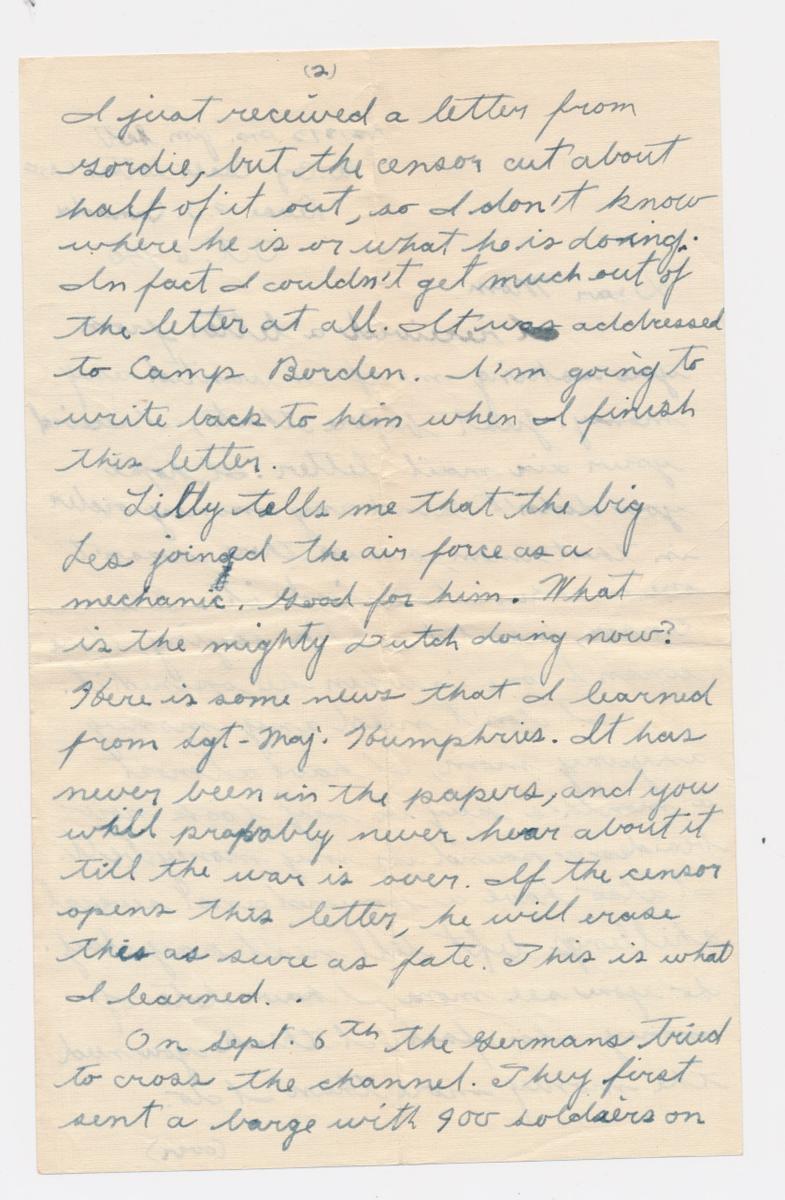 (2)
I just received a letter from
Gordie, but the censor cut about
half of it out, so I don't know
where he is or what he is doing.
In fact I couldn't get much out of
the letter at all. It was addressed
to Camp Borden. I'm going to
write back to him when I finish
this letter.
Lilly tells me that the big
Les joined the air force as a
mechanic. Good for him. What
is the mighty Dutch doing now?
Here is some news that I learned
from Sgt-Maj. Humphries. It has
never been in the papers, and you
will probably never hear about it
till the war is over. If the censor
opens this letter, he will erase
this as sure as fate. This is what
I learned.
On Sept. 6th the Germans tried
to cross the channel. They first
sent a barge with 900 soldiers on
(over)